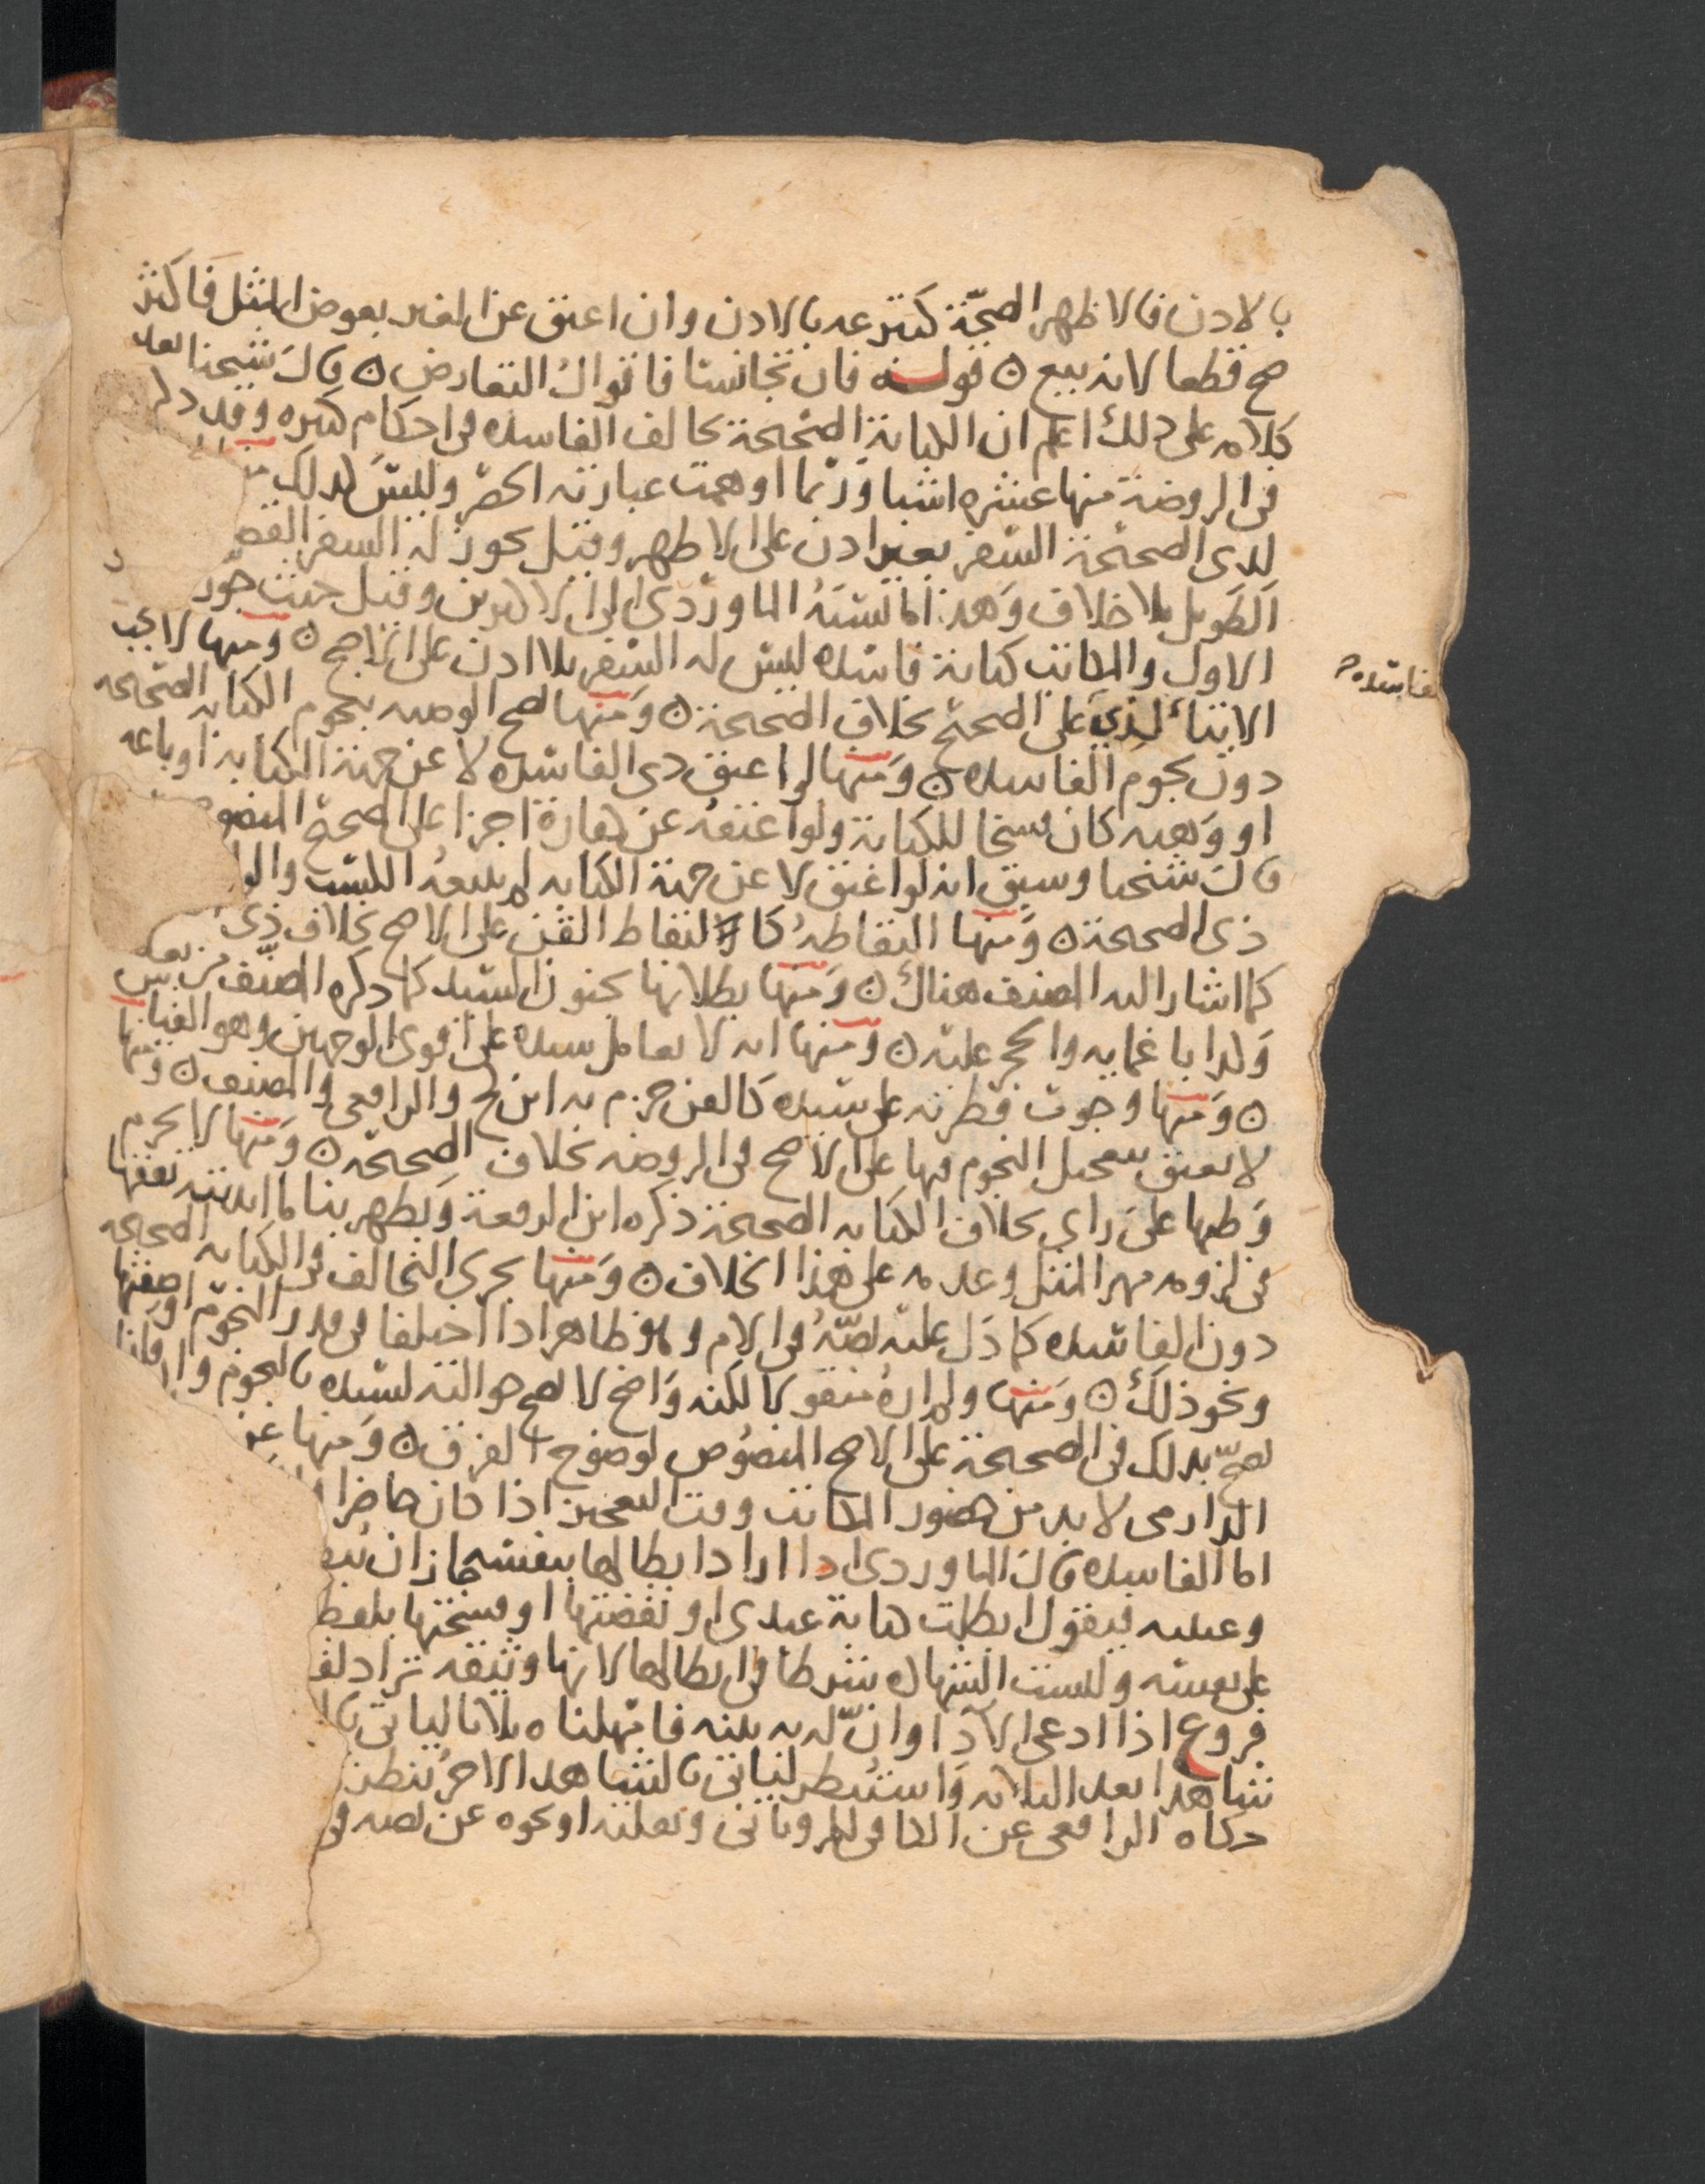 بالاذن فالاظهر الصحة كتبرعه بالاذن وان اعتق عن الغير بعوض المثل فاكثر
صح قطعا لانه بيع ن قوله فان تجانسا فاقوال التقاص ن قال شيخنا بعد
كلامه على ذلك اعلم ان الكتابة الصحيحة تخالف الفاسده في احكام كثيره وقد ذكر
في الروضة منها عشره اشيا وربما اوهمت عبارته الحصر وليس كذلك
لذي الصحيحة السفر بغير اذن على الاظهر وقيل يجوز له السفر القص
الطويل بلا خلاف وهذا ما نسبه الماوردي الى الاكثرين وقيل حيث جوز
الاول والمكاتب كتابة فاسده ليس له السفر بلا اذن على الاصح ن ومنها لا يجب
الايتاء لذي على الصحيح بخلاف الصحيحة ن ومنها تصح الوصيه بنجوم الكتابه الصحيحه
الفاسده
دون نجوم الفاسده ن ومنها لو اعتق ذي الفاسده لا عن جهة الكتابه او باعه
او وهبه كان فسخا للكتابة ولو اعتقه عن كفارة اجزا على الصحيح المنصو
قال شيخنا وسبق انه لو اعتق لا عن جهة الكتابه لم يتبعه الكسب والو
ذي الصحيحة ن ومنها التقاطه كالتقاط القن على الاصح بخلاف ذي
كما اشار اليه المصنف هناك ن ومنها بطلانها بجنون السيد كما ذكره المصنف من بعد
وكذا باغمايه والحجر عليه ن ومنها انه لا يعامل سيده على اقوى الوجهين وهو القياس
ن ومنها وجوب فطرته على سيده كالقن جزم به ابن كج والرافعي والمصنف ن ومنها
لا يعتق بتعجيل النجوم فيها على الاصح في الروضه بخلاف الصحيحه ن ومنها لا يحرم
وطيها على راي بخلاف الكتابه الصحيحة ذكره ابن الرفعة ويظهر بنا ما ابديته تفقها
في لزومه مهر المثل وعدمه على هذا الخلاف ن ومنها يجري التحالف في الكتابه الصحيحه
دون الفاسده كما دل عليه نصه في الام وهو ظاهر اذا اختلفا في قدر النجوم او صفتها
ونحو ذلك ن ومنها ولم اره منقولا لكنه واضح لا تصح حوالته لسيده بالنجوم وان قلنا
تصح بذلك في الصحيحة على الاصح المنصوص لوضوح الفرق ن ومنها
الدارمي لا بد من حضور المكاتب وقت التعجيز اذا كان حاضرا
اما الفاسده قال الماوردي اذا اراد ابطالها بنفسه جاز ان
وعينيه فيقول ابطلت كتابة عبدي او نقضتها او فسختها بلفظ
على نفسه وليست الشهاده شرطا في ابطالها لانها وثيقه تراد
فروع اذا ادعى الاداء وان له به بينه فامهلناه ثلاثا لياتي
شاهدا بعد الثلاثه واستنظر لياتي بالشاهد الاخر ينظر
حكاه الرافعي عن الكافي للروياني وتعليقه او نحوه عن نصه في